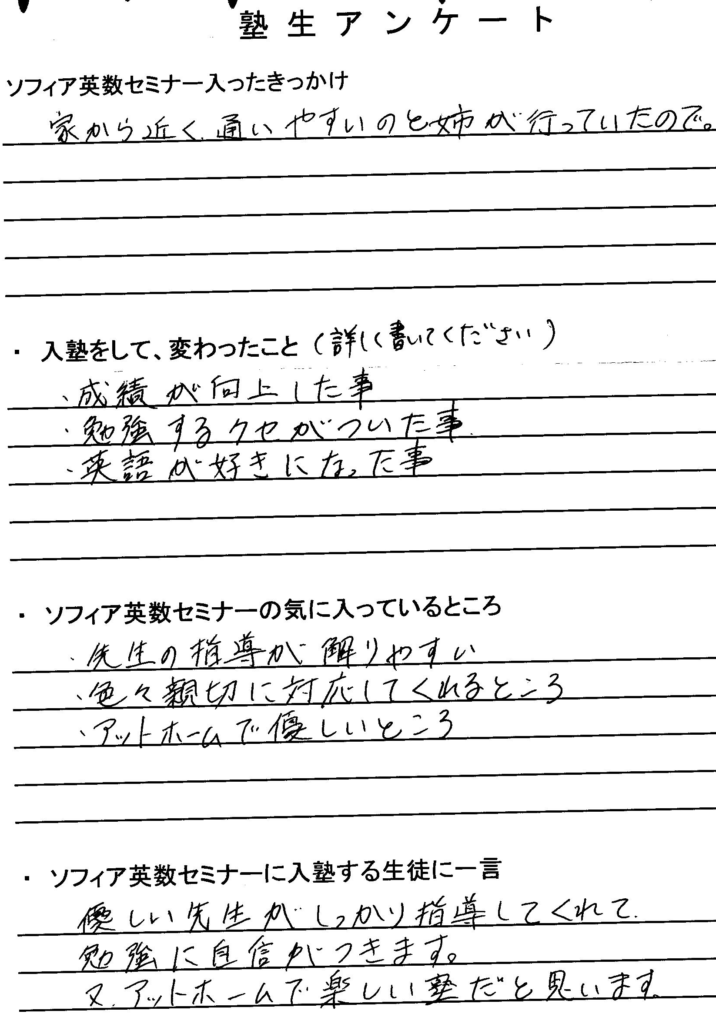 塾生アンケート
ソフィア英数セミナー入ったきっかけ
家から近く、通いやすいのと姉が行っていたので。
・ 入塾をして、変わったこと (詳しく書いてください)
・成績が向上した事
・勉強するクセがついた事.
・英語が好きになった事
・ ソフィア英数セミナーの気に入っているところ
・先生の指導が解りやすい
・色々親切に対応してくれるところ
・アットホームで優しいところ
・ ソフィア英数セミナーに入塾する生徒に一言
優しい先生がしっかり指導してくれて、
勉強に自信がつきます。
又、アットホームで楽しい塾だと思います。